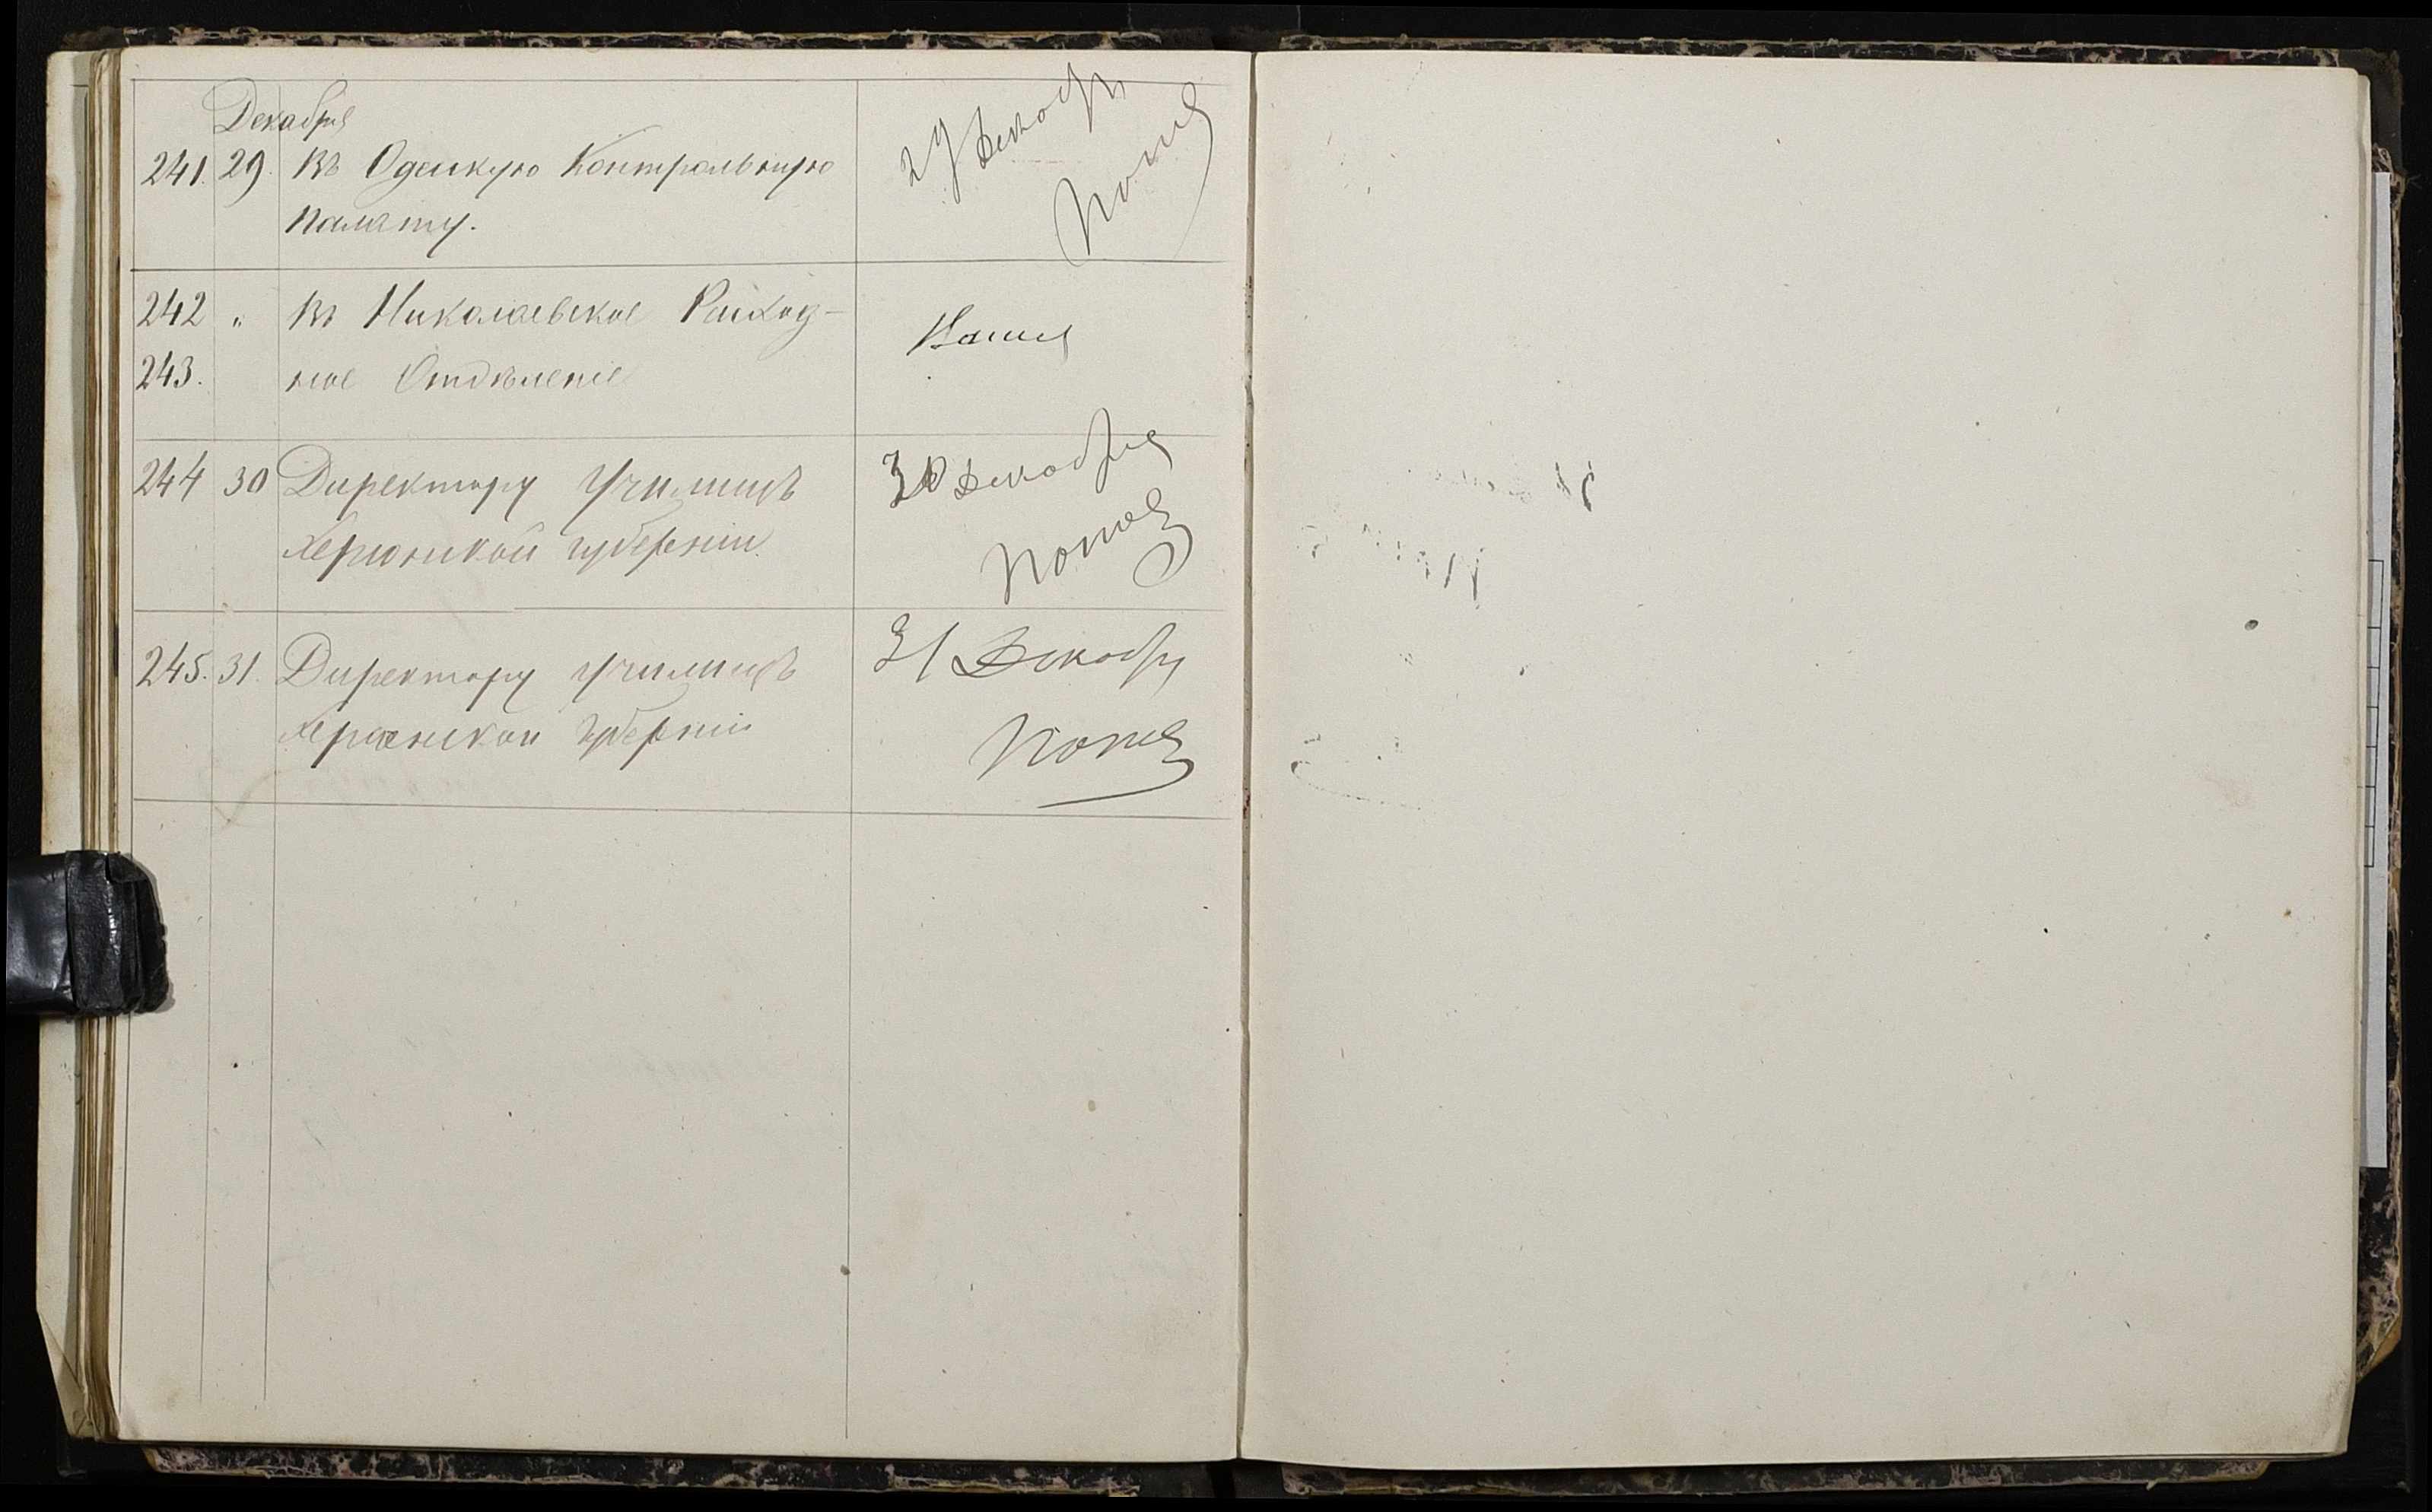 Декабря
241. 29. Въ Одесскую Контрольную
Палату.
29 Декабр
242 " Въ Николаевское Расход-
243. ное Отдѣленіе
244 30 Директору Училищъ
Херсонской губерніи.
30 Декабря
245. 31. Директору училищъ
Херсонской губерніи
31 Декабр